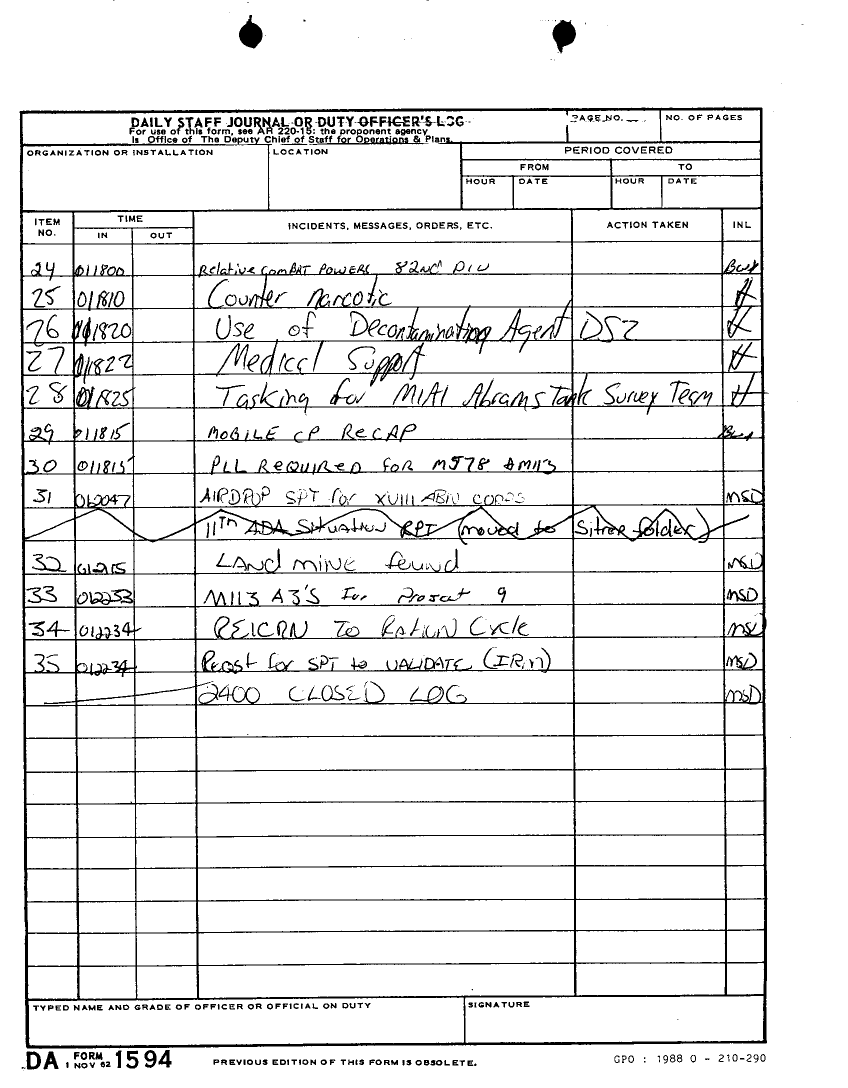 DAILY STAFF JOURNAL OR DUTY OFFICER'S LOG
For use of this form, see AR 220-15: the proponent agency
is Office of The Deputy Chief of Staff for Operations & Plans.
PAGE NO.
NO. OF PAGES
ORGANIZATION OR INSTALLATION
LOCATION
PERIOD COVERED
FROM
TO
HOUR DATE HOUR DATE
ITEM NO.
TIME
IN OUT
INCIDENTS, MESSAGES, ORDERS, ETC.
ACTION TAKEN
INL
24 011800 Relative Combat Powers 82nd Div
25 011810 Counter narcotic
26 011820 Use of Decontaminating Agent DS2
27 011822 Medical Support
28 011825 Tasking for M1A1 Abrams Tank Survey Team
29 011815 MOBILE CP RECAP
30 011815 PLL REQUIRED for M578 & M113
31 012047 AIRDROP SPT for XVIII ABN CORPS MSD
11th ADA Situation RPT (moved to Sitrep folder)
32 012215 LAND mine found MSD
33 012233 M113 A3'S For 9 MSD
34 012234 RETURN To Ration Cycle MSD
35 012234 Reqst for SPT to VALIDATE MSD
2400 CLOSED LOG MSD
TYPED NAME AND GRADE OF OFFICER OR OFFICIAL ON DUTY
SIGNATURE
DA FORM 1 NOV 62 1594
PREVIOUS EDITION OF THIS FORM IS OBSOLETE.
GPO : 1988 O - 210-290